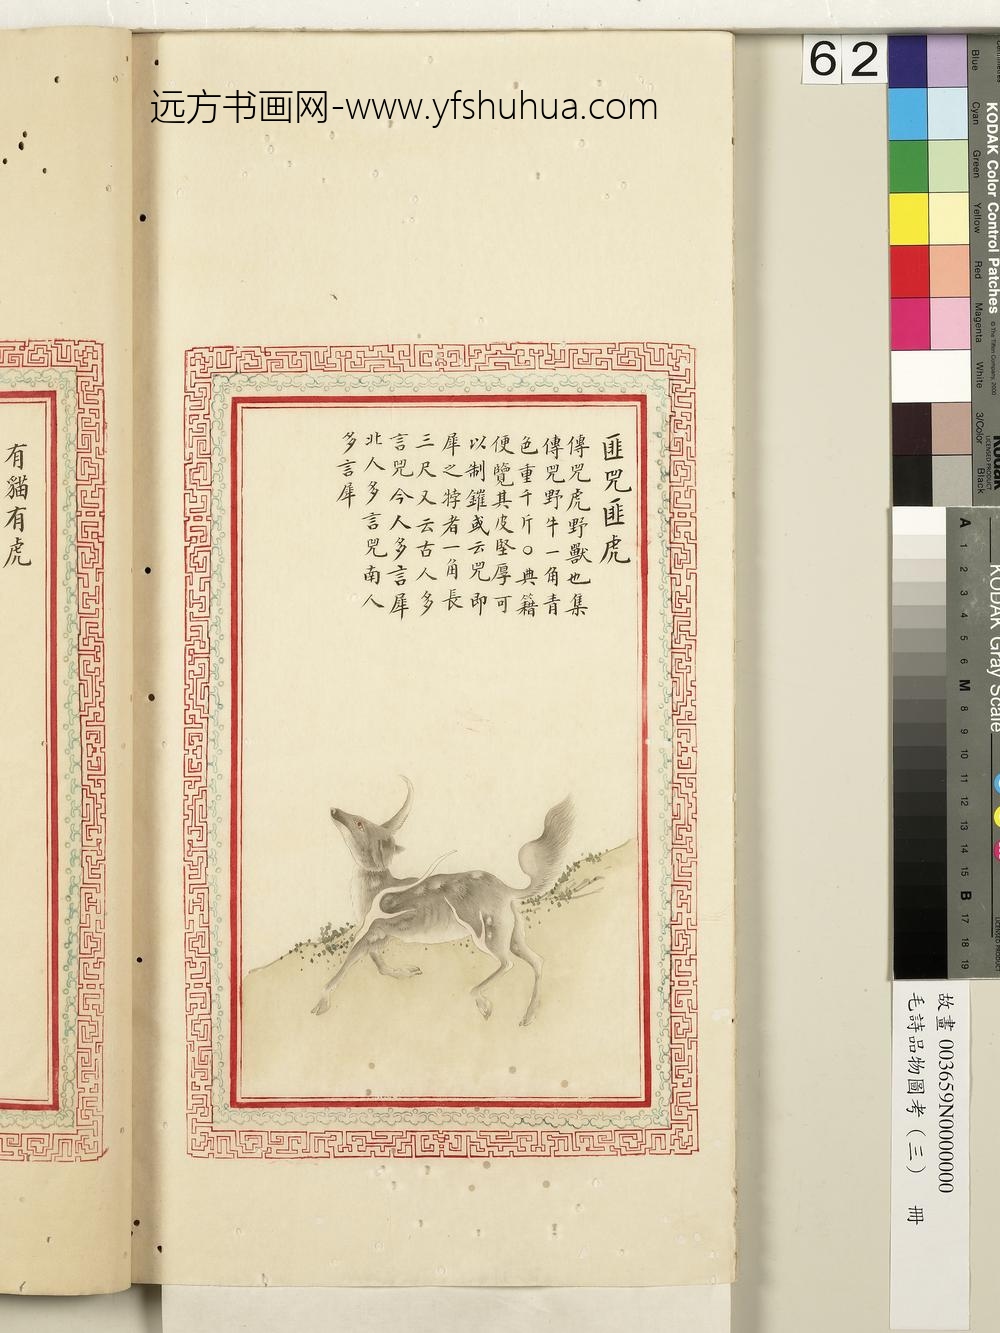 远方书画网-www.yfshuhua.com
62
匪兕匪虎
傳兕虎野獸也集
傳兕野牛一角青
色重千斤○典籍
便覽其皮堅厚可
以制鎧或云兕即
犀之牸者一角長
三尺又云古人多
言兕今人多言犀
北人多言兕南人
多言犀
有貓有虎
KODAK Color Control Patches
Blue
Cyan
Green
Yellow
Red
Magenta
White
3/Color
Black
Kodak
LICENSED PRODUCT
KODAK Gray Scale
A 1 2 3 4 5 6 M 8 9 10 11 12 13 14 15 B 17 18 19
故畫 003659N0000000
毛詩品物圖考（三） 冊